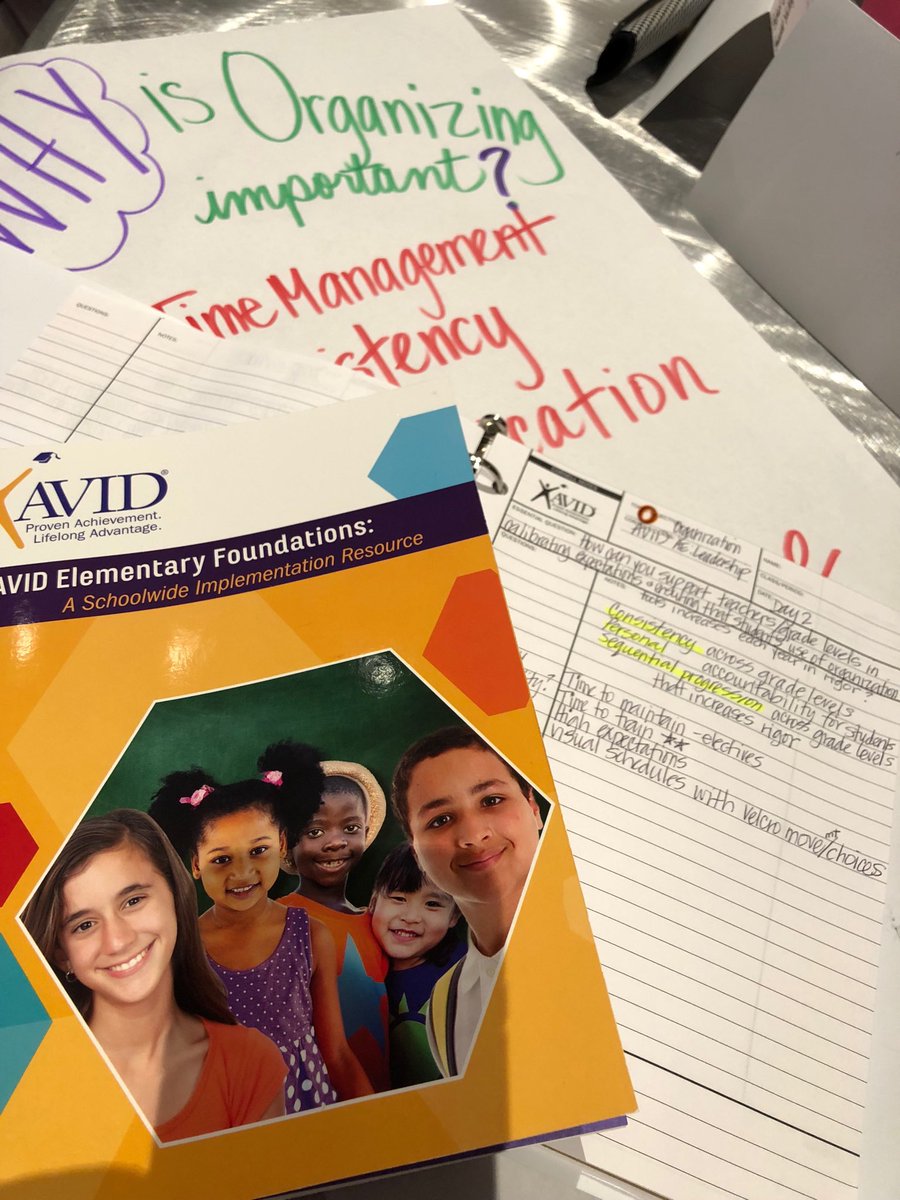 WHY is Organizing
important?
Time Management
istency
cation
QUESTIONS:
NOTES:
AVID®
Proven Achievement.
Lifelong Advantage.
AVID Elementary Foundations:
A Schoolwide Implementation Resource
AVID
ESSENTIAL QUESTION:
Organization
AVID AE Leadership
NAME:
CLASS/PERIOD:
DATE: Day 2
How can you support teachers/grade levels in
calibrating expectations & ensuring that student use of organization
tools increases each year in rigor?
QUESTIONS:
NOTES:
Consistency across grade levels
Personal accountability for students
sequential progression across grade levels
that increases rigor
Time to maintain - electives
Time to train **
High expectations
Visual schedules with velcro movemt/choices